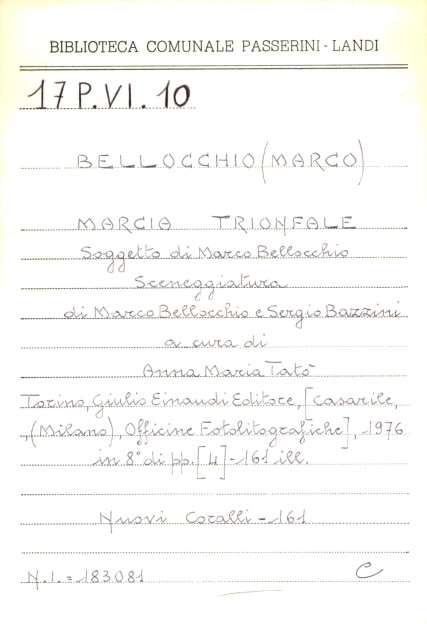 BIBLIOTECA COMUNALE PASSERINI - LANDI
17 P.VI.10
BELLOCCHIO (MARCO)
MARCIA TRIONFALE
Soggetto di Marco Bellocchio
Sceneggiatura
di Marco Bellocchio e Sergio Bazzini
a cura di
Anna Maria Tatò
Torino, Giulio Einaudi Editore, [Casarile,
,(Milano), Officine Fotolitografiche], 1976
in 8° di pp. [4]-161 ill.
Nuovi Coralli - 161
N.I. = 183081 C